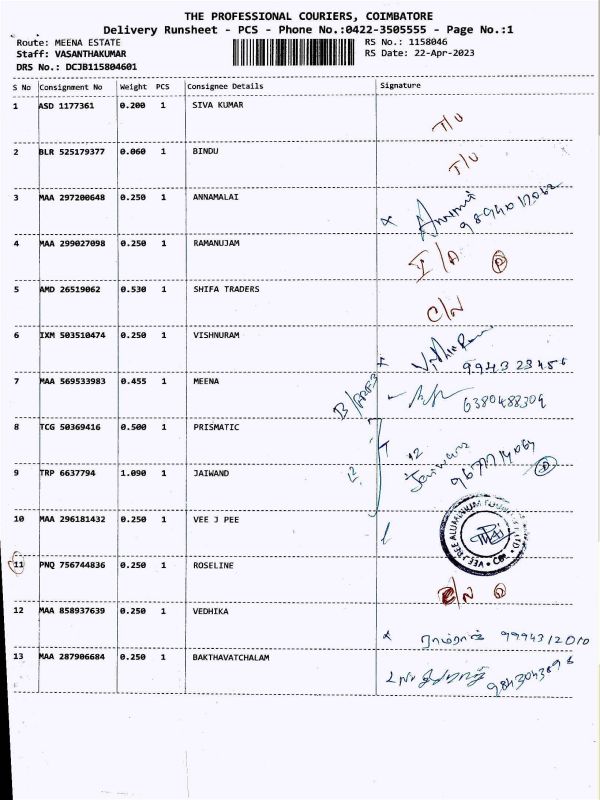 THE PROFESSIONAL COURIERS, COIMBATORE
Delivery Runsheet - PCS - Phone No.:0422-3505555 - Page No.:1
Route: MEENA ESTATE
RS No.: 1158046
Staff: VASANTHAKUMAR
RS Date: 22-Apr-2023
DRS No.: DCJB115804601
S No Consignment No Weight PCS Consignee Details Signature
1 ASD 1177361 0.200 1 SIVA KUMAR
T/U
2 BLR 525179377 0.060 1 BINDU
T/U
3 MAA 297200648 0.250 1 ANNAMALAI
4 MAA 299027098 0.250 1 RAMANUJAM
I/A P
5 AMD 26519062 0.530 1 SHIFA TRADERS
C/N
6 IXM 503510474 0.250 1 VISHNURAM
7 MAA 569533983 0.455 1 MEENA
6380488309
8 TCG 50369416 0.500 1 PRISMATIC
9 TRP 6637794 1.090 1 JAIWAND
10 MAA 296181432 0.250 1 VEE J PEE
11 PNQ 756744836 0.250 1 ROSELINE
12 MAA 858937639 0.250 1 VEDHIKA
9994312010
13 MAA 287906684 0.250 1 BAKTHAVATCHALAM